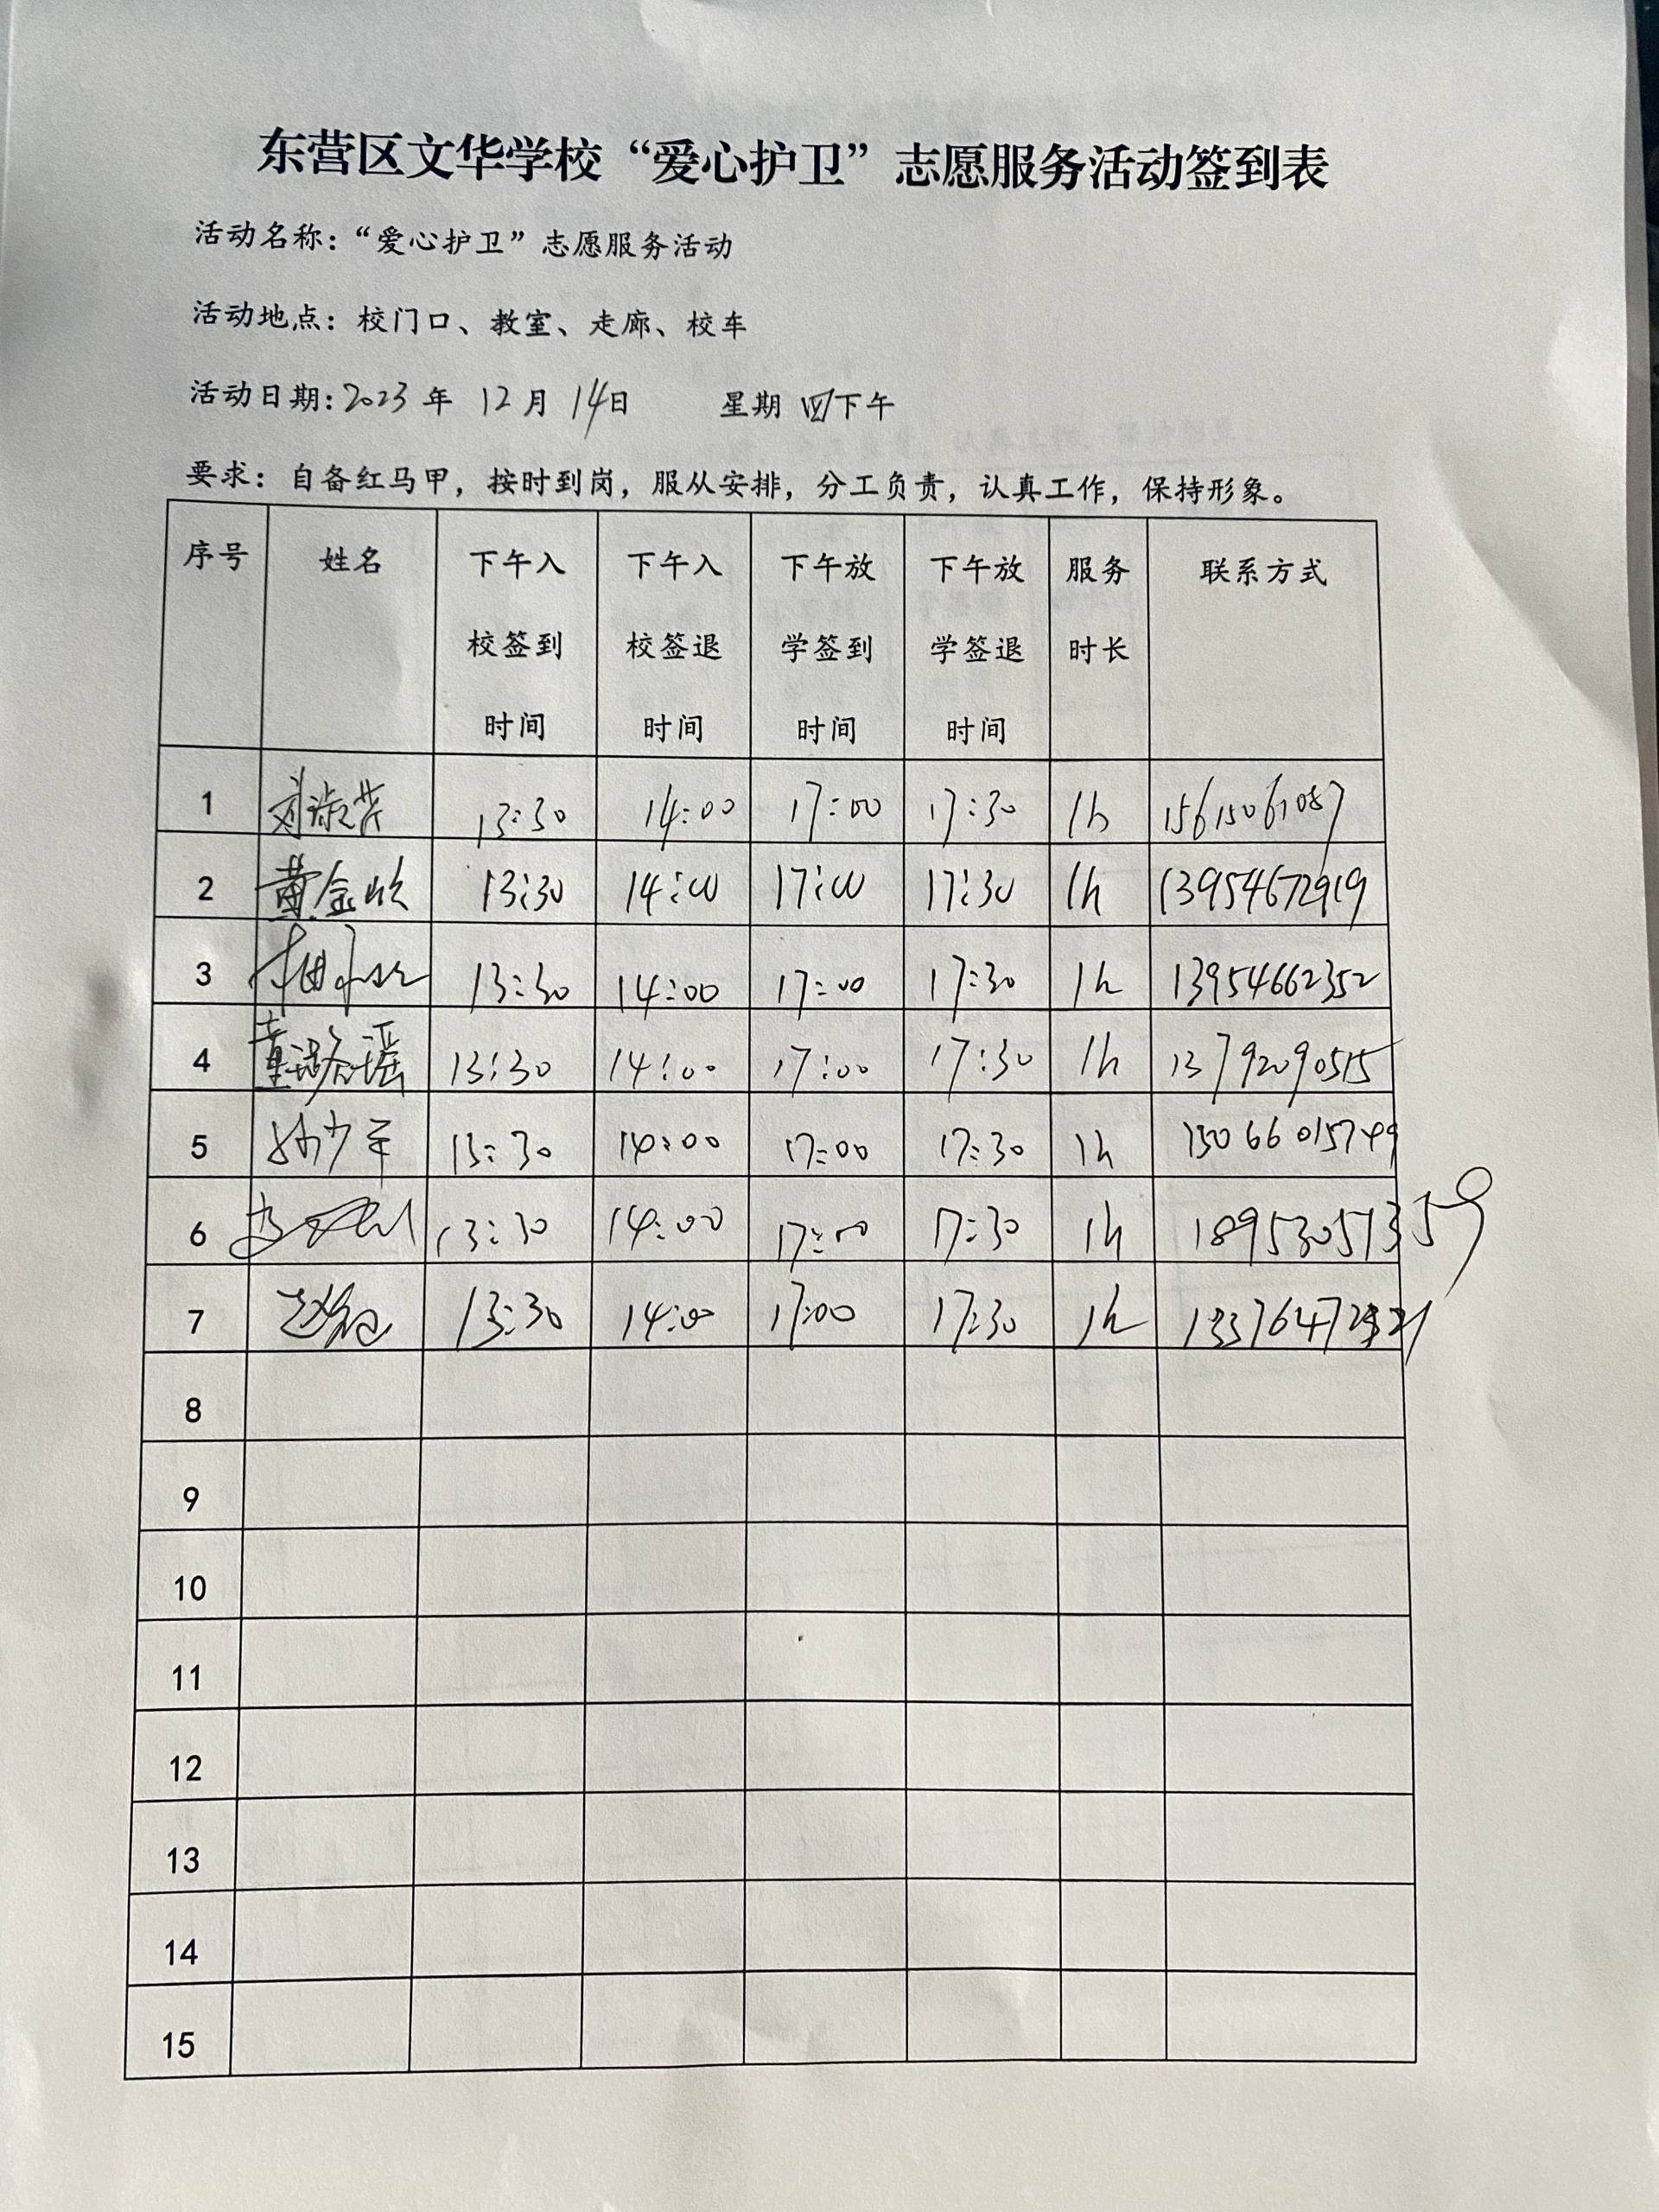 东营区文华学校“爱心护卫”志愿服务活动签到表
活动名称：“爱心护卫”志愿服务活动
活动地点：校门口、教室、走廊、校车
活动日期：2023 年 12 月 14日 星期 四下午
要求：自备红马甲，按时到岗，服从安排，分工负责，认真工作，保持形象。
序号 姓名 下午入校签到时间 下午入校签退时间 下午放学签到时间 下午放学签退时间 服务时长 联系方式
1 刘淑芹 13:30 14:00 17:00 17:30 1h 15615061087
2 黄金欣 13:30 14:00 17:00 17:30 1h 13954672919
3 13:30 14:00 17:00 17:30 1h 13954662352
4 董璐瑶 13:30 14:00 17:00 17:30 1h 13792090515
5 13:30 14:00 17:00 17:30 1h 15066015749
6 13:30 14:00 17:00 17:30 1h 18953051359
7 13:30 14:00 17:00 17:30 1h
8
9
10
11
12
13
14
15